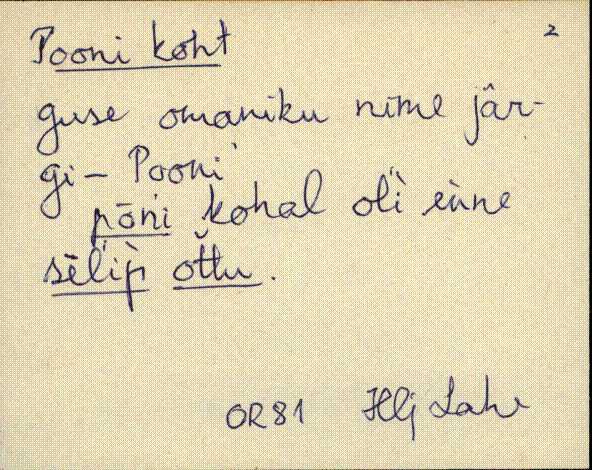 2
Pooni koht
guse omaniku nime jär-
gi - Pooni
pōni kohal oĺi eǹne
sēĺip oťtu.
OR81 Hlj Lahe